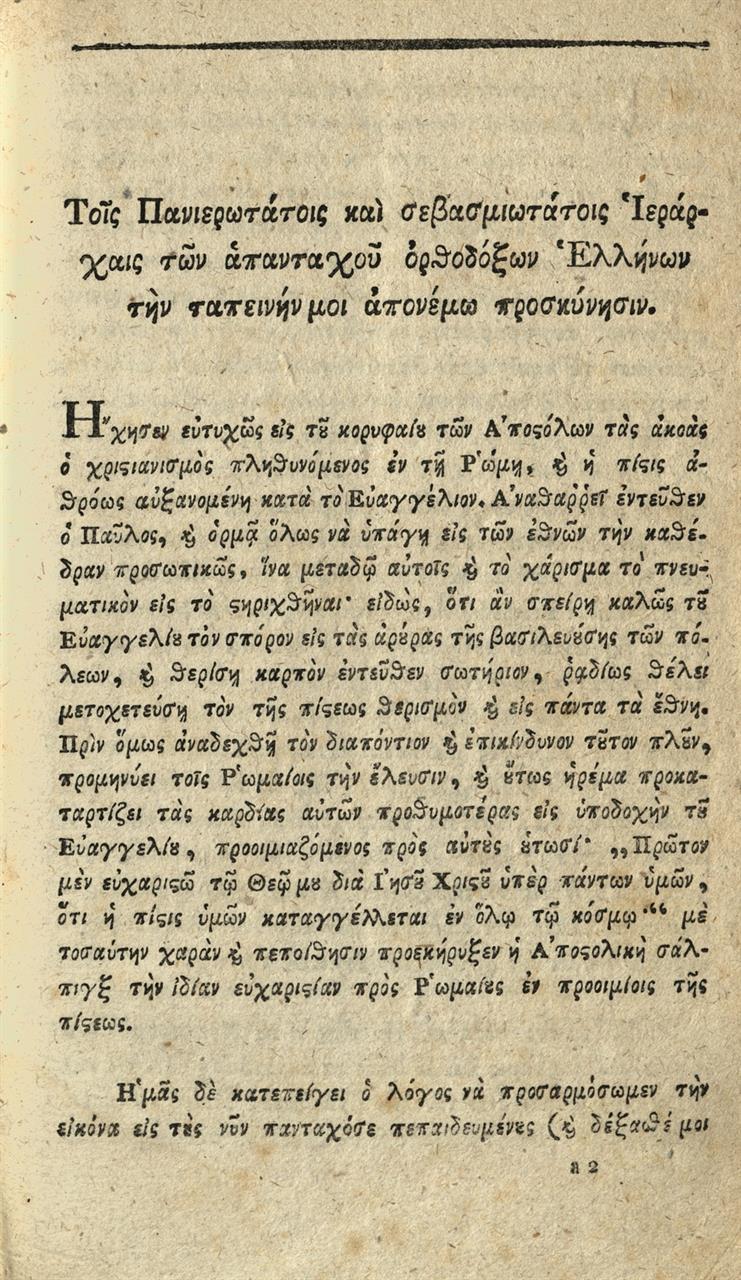 Τοῖς Πανιερωτάτοις καὶ σεβασμιωτάτοις Ἱεράρ-
χαις τῶν ἁπανταχοῦ ὀρθοδόξων Ἑλλήνων
τὴν ταπεινήν μοι ἀπονέμω προσκύνησιν.
Ἤχησεν εὐτυχῶς εἰς τȣ͂ κορυφαίȣ τῶν Ἀποϛόλων τὰς ἀκοὰς
ὁ χριϛιανισμὸς πληθυνόμενος ἐν τῇ Ῥώμῃ, ϗ ἡ πίϛις ἀ-
θρόως αὐξανομένη κατὰ τὸ Εὐαγγέλιον. Ἀναθαῤῥεῖ ἐντεῦθεν
ὁ Παῦλος, ϗ ὁρμᾷ ὅλως νὰ ὑπάγῃ εἰς τῶν ἐθνῶν τὴν καθέ-
δραν προσωπικῶς, ἵνα μεταδῷ αὐτοῖς ϗ τὸ χάρισμα τὸ πνευ-
ματικὸν εἰς τὸ ϛηριχθῆναι· εἰδὼς, ὅτι ἂν σπείρῃ καλῶς τȣ͂
Εὐαγγελίȣ τὸν σπόρον εἰς τὰς ἀρȣ́ρας τῆς βασιλευȣ́σης τῶν πό-
λεων, ϗ θερίσῃ καρπὸν ἐντεῦθεν σωτήριον, ῥᾳδίως θέλει
μετοχετεύσῃ τὸν τῆς πίϛεως θερισμὸν ϗ εἰς πάντα τὰ ἔθνη.
Πρὶν ὅμως ἀναδεχθῇ τὸν διαπόντιον ϗ ἐπικίνδυνον τȣ͂τον πλȣ͂ν,
προμηνύει τοῖς Ῥωμαίοις τὴν ἔλευσιν, ϗ ȣ̔́τως ἠρέμα προκα-
ταρτίζει τὰς καρδίας αὐτῶν προθυμοτέρας εἰς ὑποδοχὴν τȣ͂
Εὐαγγελίȣ, προοιμιαζόμενος πρὸς αὐτȣ̀ς ȣ̔τωσί· „Πρῶτον
μὲν εὐχαριϛῶ τῷ Θεῷ μȣ διὰ Ἰησȣ͂ Χριϛȣ͂ ὑπὲρ πάντων ὑμῶν,
ὅτι ἡ πίϛις ὑμῶν καταγγέλλεται ἐν ὅλῳ τῷ κόσμῳ·“ μὲ
τοσαύτην χαρὰν ϗ πεποίθησιν προεκήρυξεν ἡ Ἀποϛολικὴ σάλ-
πιγξ τὴν ἰδίαν εὐχαριϛίαν πρὸς Ῥωμαίȣς ἐν προοιμίοις τῆς
πίϛεως.
Ἡμᾶς δὲ κατεπείγει ὁ λόγος νὰ προσαρμόσωμεν τὴν
εἰκόνα εἰς τȣ̀ς νῦν πανταχόσε πεπαιδευμένȣς (ϗ δέξασθέ μοι
a 2